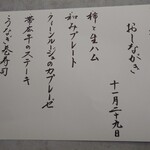 おしながき
十一月二十九日
柿と生ハム
和みプレート
クィーンルージュのカプレーゼ
常陸牛のステーキ
うなぎ巻寿司